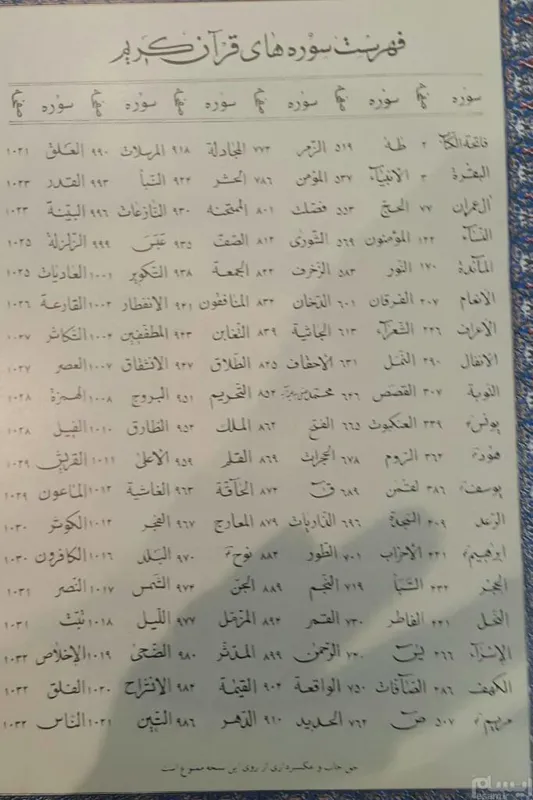 فهرست سوره های قرآن کریم
سوره صفحه سوره صفحه سوره صفحه سوره صفحه سوره صفحه سوره صفحه
فاتحة الکتاب ۲ طه ۵۱۹ الزمر ۷۷۳ المجادلة ۹۱۸ المرسلات ۹۹۰ العلق ۱۰۲۱
البقرة ۳ الانبیاء ۵۳۷ المؤمن ۷۸۶ الحشر ۹۲۴ النبأ ۹۹۳ القدر ۱۰۲۳
آل عمران ۷۷ الحج ۵۵۳ فصلت ۸۰۱ الممتحنه ۹۳۰ النازعات ۹۹۶ البینة ۱۰۲۳
النساء ۱۲۲ المؤمنون ۵۶۹ الشوری ۸۱۲ الصف ۹۳۵ عبس ۹۹۹ الزلزلة ۱۰۲۵
المائدة ۱۷۰ النور ۵۸۳ الزخرف ۸۲۲ الجمعة ۹۳۸ التکویر ۱۰۰۱ العادیات ۱۰۲۵
الانعام ۲۰۷ الفرقان ۶۰۱ الدخان ۸۳۲ المنافقون ۹۴۱ الانفطار ۱۰۰۳ القارعة ۱۰۲۶
الاعراف ۲۴۶ الشعراء ۶۱۳ الجاثیة ۸۳۹ التغابن ۹۴۳ المطففین ۱۰۰۴ التکاثر ۱۰۲۷
الانفال ۲۹۰ النمل ۶۳۱ الاحقاف ۸۴۵ الطلاق ۹۴۷ الانشقاق ۱۰۰۷ العصر ۱۰۲۷
التوبة ۳۰۷ القصص ۶۴۶ محمد ۸۵۳ التحریم ۹۵۱ البروج ۱۰۰۸ الهمزة ۱۰۲۸
یونس ۳۳۹ العنکبوت ۶۶۵ الفتح ۸۶۲ الملک ۹۵۴ الطارق ۱۰۱۰ الفیل ۱۰۲۸
هود ۳۶۲ الروم ۶۷۸ الحجرات ۸۶۹ القلم ۹۵۹ الاعلی ۱۰۱۱ القریش ۱۰۲۹
یوسف ۳۸۶ لقمن ۶۸۹ ق ۸۷۴ الحاقة ۹۶۳ الغاشیة ۱۰۱۲ الماعون ۱۰۲۹
الرعد ۴۰۹ السجدة ۶۹۶ الذاریات ۸۷۹ المعارج ۹۶۷ الفجر ۱۰۱۴ الکوثر ۱۰۳۰
ابراهیم ۴۲۱ الاحزاب ۷۰۱ الطور ۸۸۴ نوح ۹۷۰ البلد ۱۰۱۶ الکافرون ۱۰۳۰
الحجر ۴۳۲ السبأ ۷۱۹ النجم ۸۸۹ الجن ۹۷۴ الشمس ۱۰۱۷ النصر ۱۰۳۱
النحل ۴۴۱ الفاطر ۷۳۰ القمر ۸۹۴ المزمل ۹۷۷ اللیل ۱۰۱۸ تبت ۱۰۳۱
الإسراء ۴۶۶ یس ۷۴۰ الرحمن ۸۹۹ المدثر ۹۸۰ الضحی ۱۰۱۹ الإخلاص ۱۰۳۲
الکهف ۴۸۶ الصافات ۷۵۰ الواقعة ۹۰۴ القیمة ۹۸۴ الانشراح ۱۰۲۰ الفلق ۱۰۳۲
مریم ۵۰۷ ص ۷۶۲ الحدید ۹۱۰ الدهر ۹۸۶ التین ۱۰۲۱ الناس ۱۰۳۲
حق چاپ و عکسبرداری از روی این نسخه ممنوع است